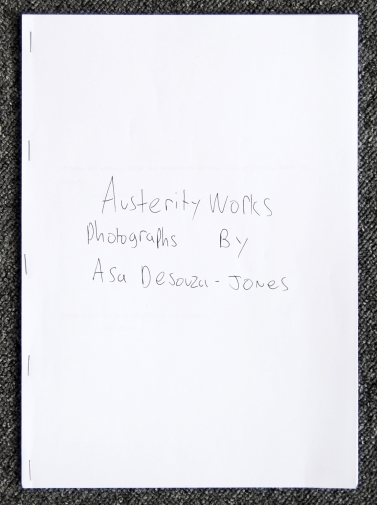 Austerity Works
Photographs By
Asa Desouza-Jones